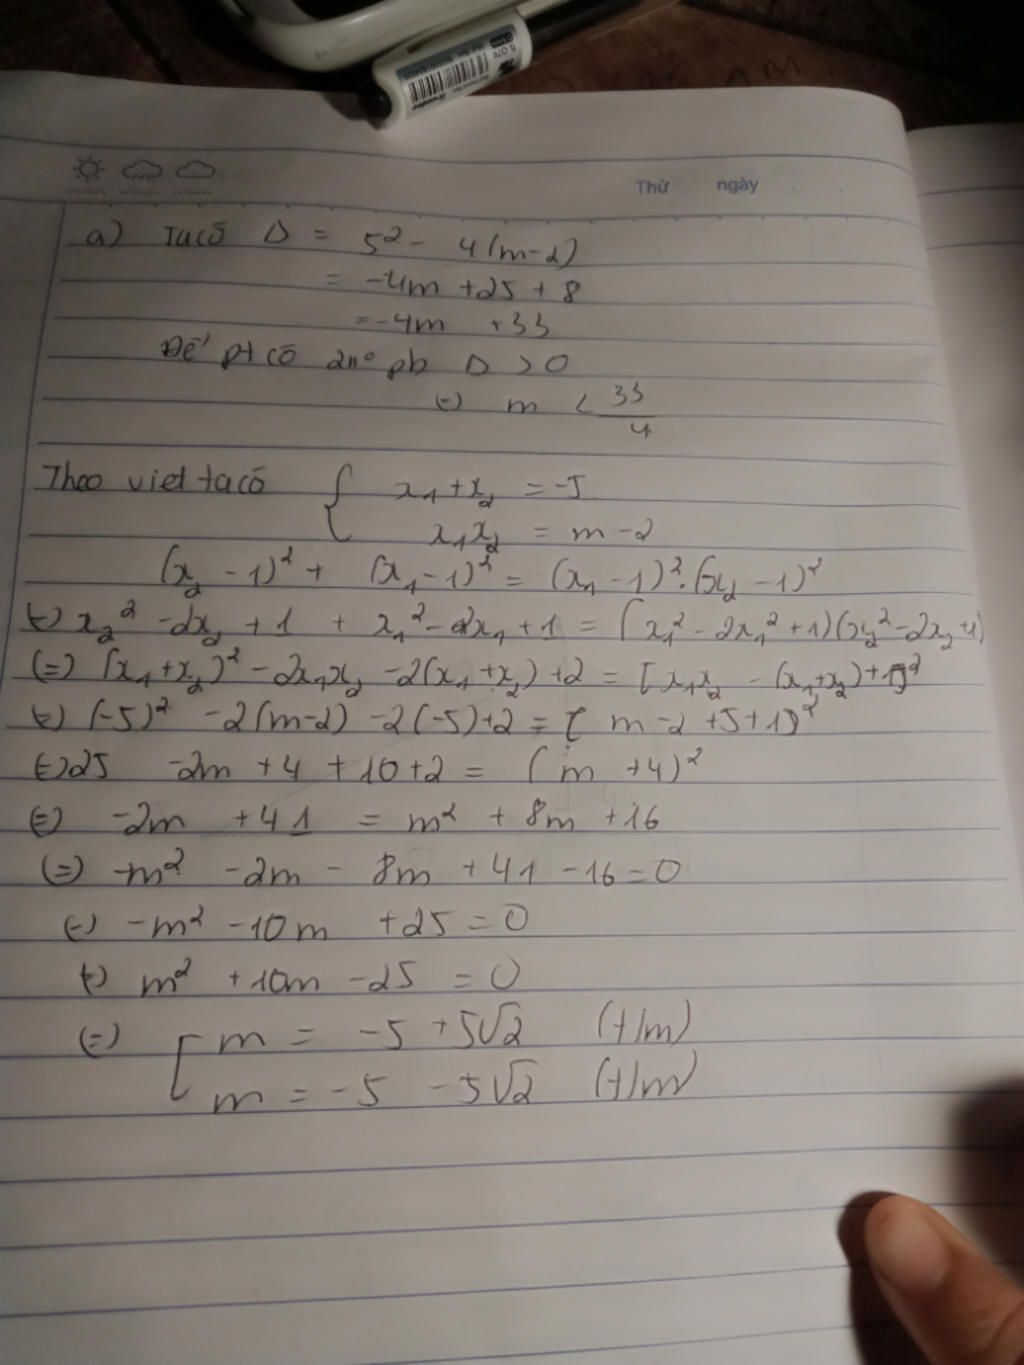 Thứ ngày
a) Ta có Δ = 5² - 4(m-2)
= -4m + 25 + 8
= -4m + 33
Để pt có 2n⁰ pb Δ > 0
(=) m < 33/4
Theo viet ta có { x₁ + x₂ = -5
x₁x₂ = m - 2
(x₂ - 1)² + (x₁ - 1)² = (x₁ - 1)².(x₂ - 1)²
(=) x₂² - 2x₂ + 1 + x₁² - 2x₁ + 1 = (x₁² - 2x₁² + 1)(x₂² - 2x₂ + 1)
(=) (x₁ + x₂)² - 2x₁x₂ - 2(x₁ + x₂) + 2 = [x₁x₂ - (x₁ + x₂) + 1]²
(=) (-5)² - 2(m-2) - 2(-5) + 2 = [m - 2 + 5 + 1]²
(=) 25 - 2m + 4 + 10 + 2 = (m + 4)²
(=) -2m + 41 = m² + 8m + 16
(=) -m² - 2m - 8m + 41 - 16 = 0
(=) -m² - 10m + 25 = 0
(=) m² + 10m - 25 = 0
(=) [ m = -5 + 5√2 (t/m)
m = -5 - 5√2 (t/m)